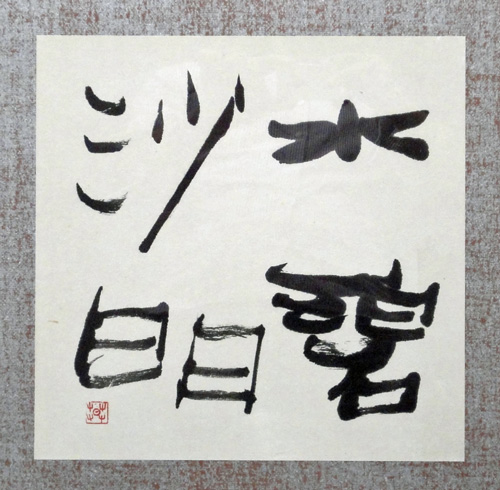 水碧
沙明